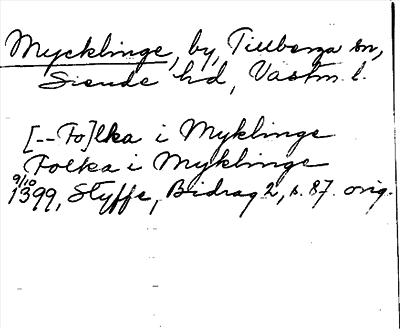 Mycklinge, by, Tillberga sn,
Siende hd, Västm. l.
[--Fo]lka i Myklinge
Folka i Myklinge
9/10 1399, Styffe, Bidrag 2, s. 87. orig.